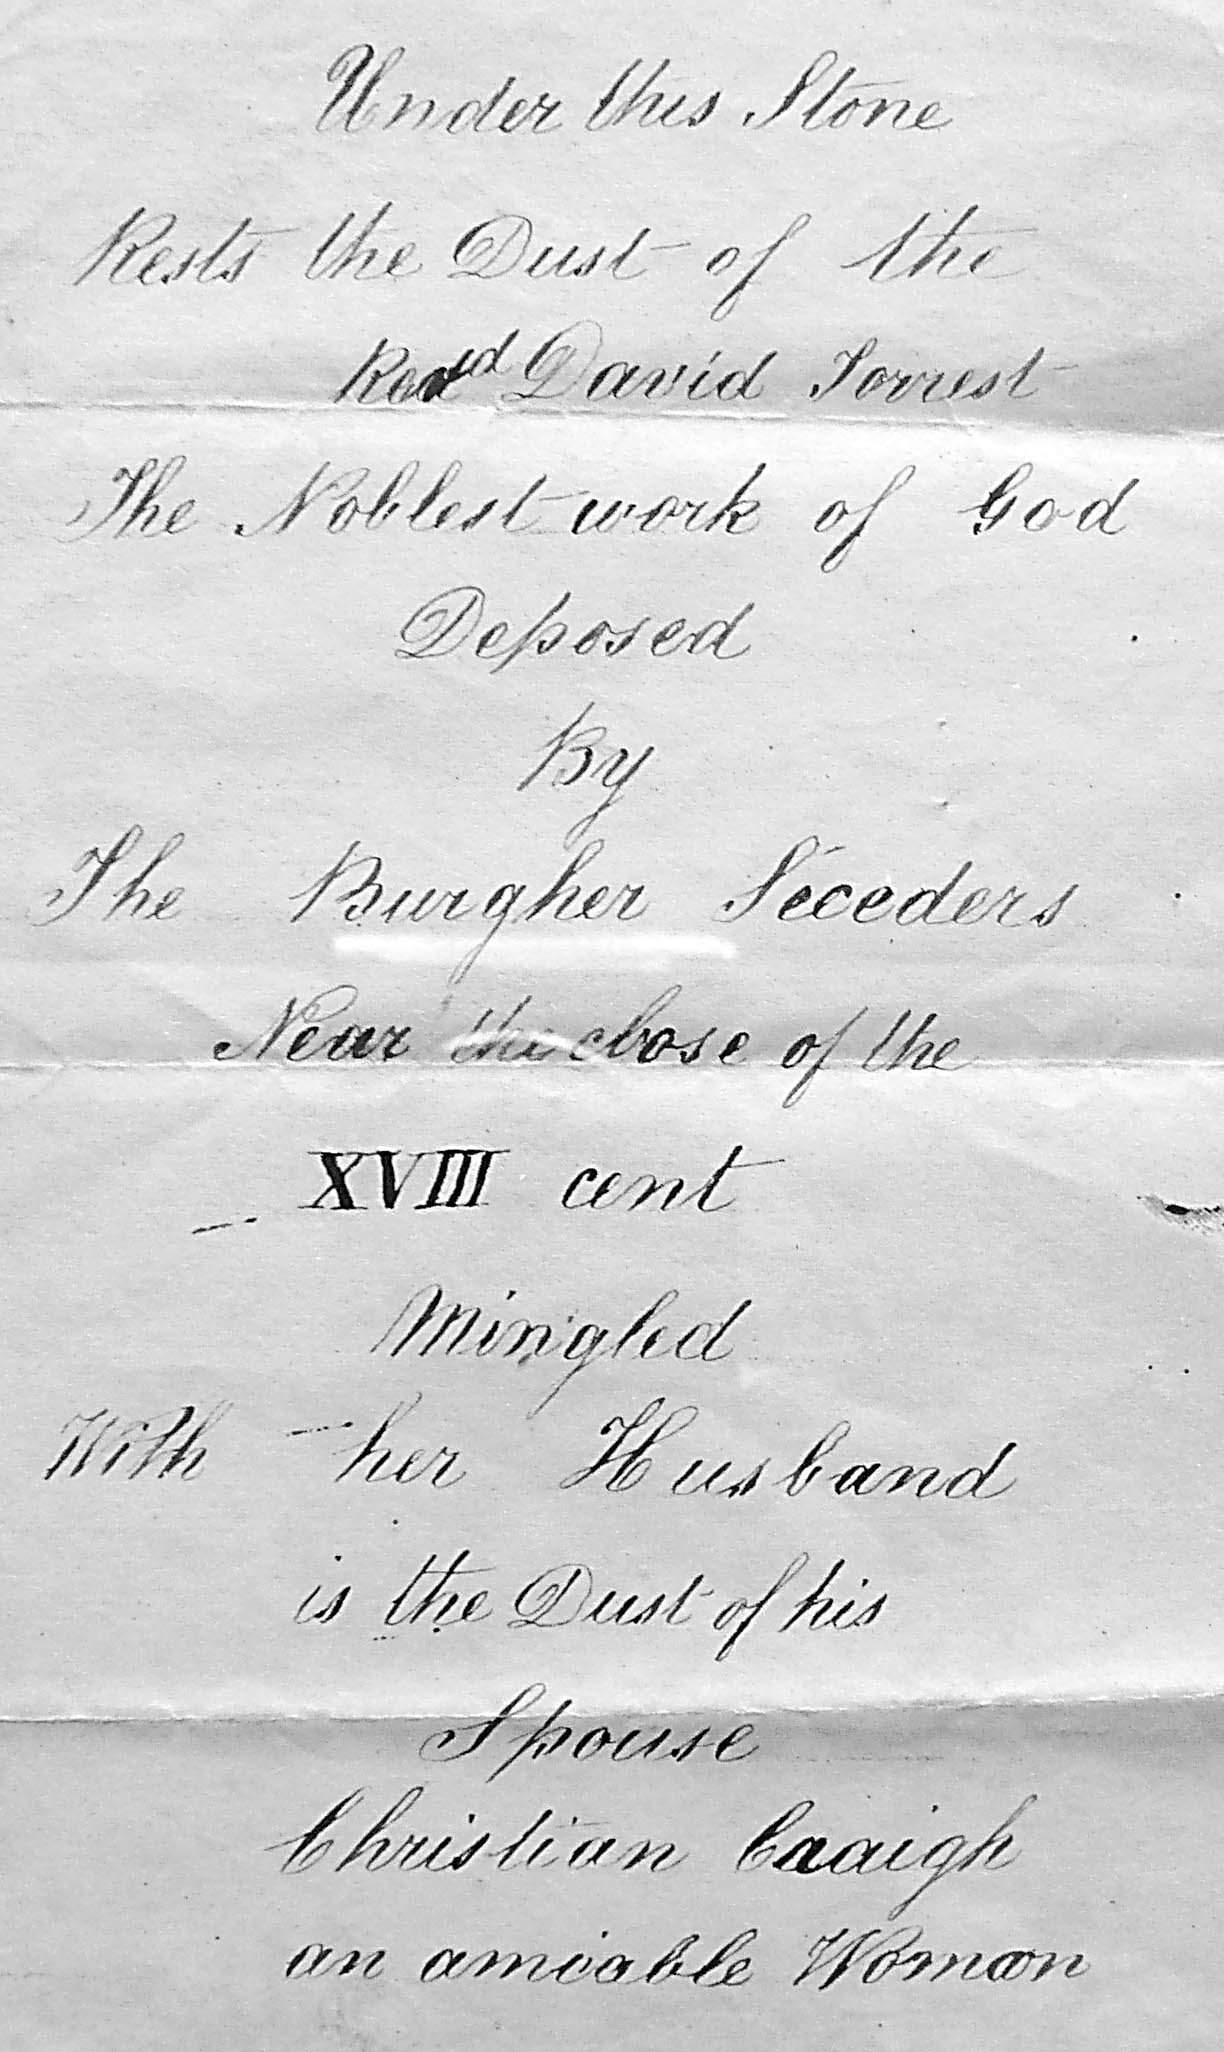 Under this Stone
Rests the Dust of the
Revd David Forrest
The Noblest work of God
Deposed
By
The Burgher Seceders
Near the close of the
XVIII cent
Mingled
With her Husband
is the Dust of his
Spouse
Christian Craigh
an amiable Woman